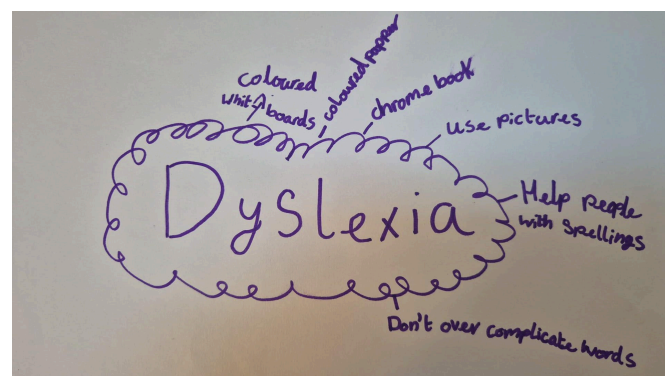 coloured
whit boards
coloured papper
chrome book
use pictures
Dyslexia
Help people
with spellings
Don't over complicate words